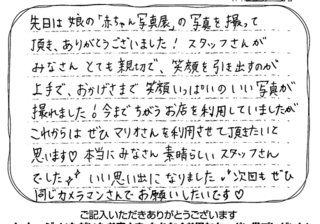 先日は娘の「赤ちゃん写真展」の写真を撮って
頂き、ありがとうございました！スタッフさんが
みなさんとても親切で、笑顔を引き出すのが
上手で、おかげさまで笑顔いっぱいのいい写真が
撮れました！今までちがうお店を利用していましたが
これからはぜひマリオさんを利用させて頂きたいと
思います♡本当にみなさん素晴らしいスタッフさん
でした♪いい思い出になりました♪次回もぜひ
同じカメラマンさんでお願いしたいです♡
ご記入いただきありがとうございます